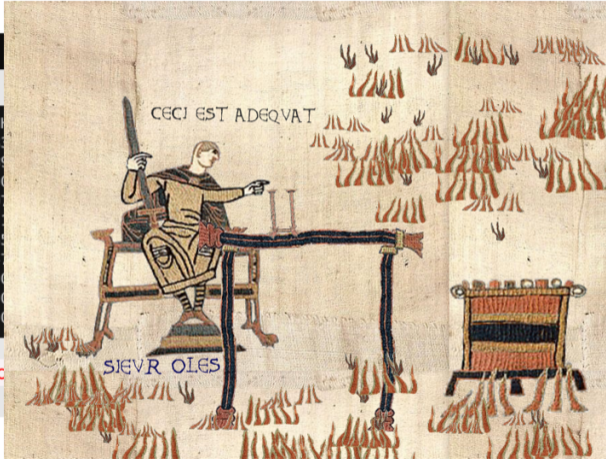 CECI EST ADEQVAT
SIEVR OLES